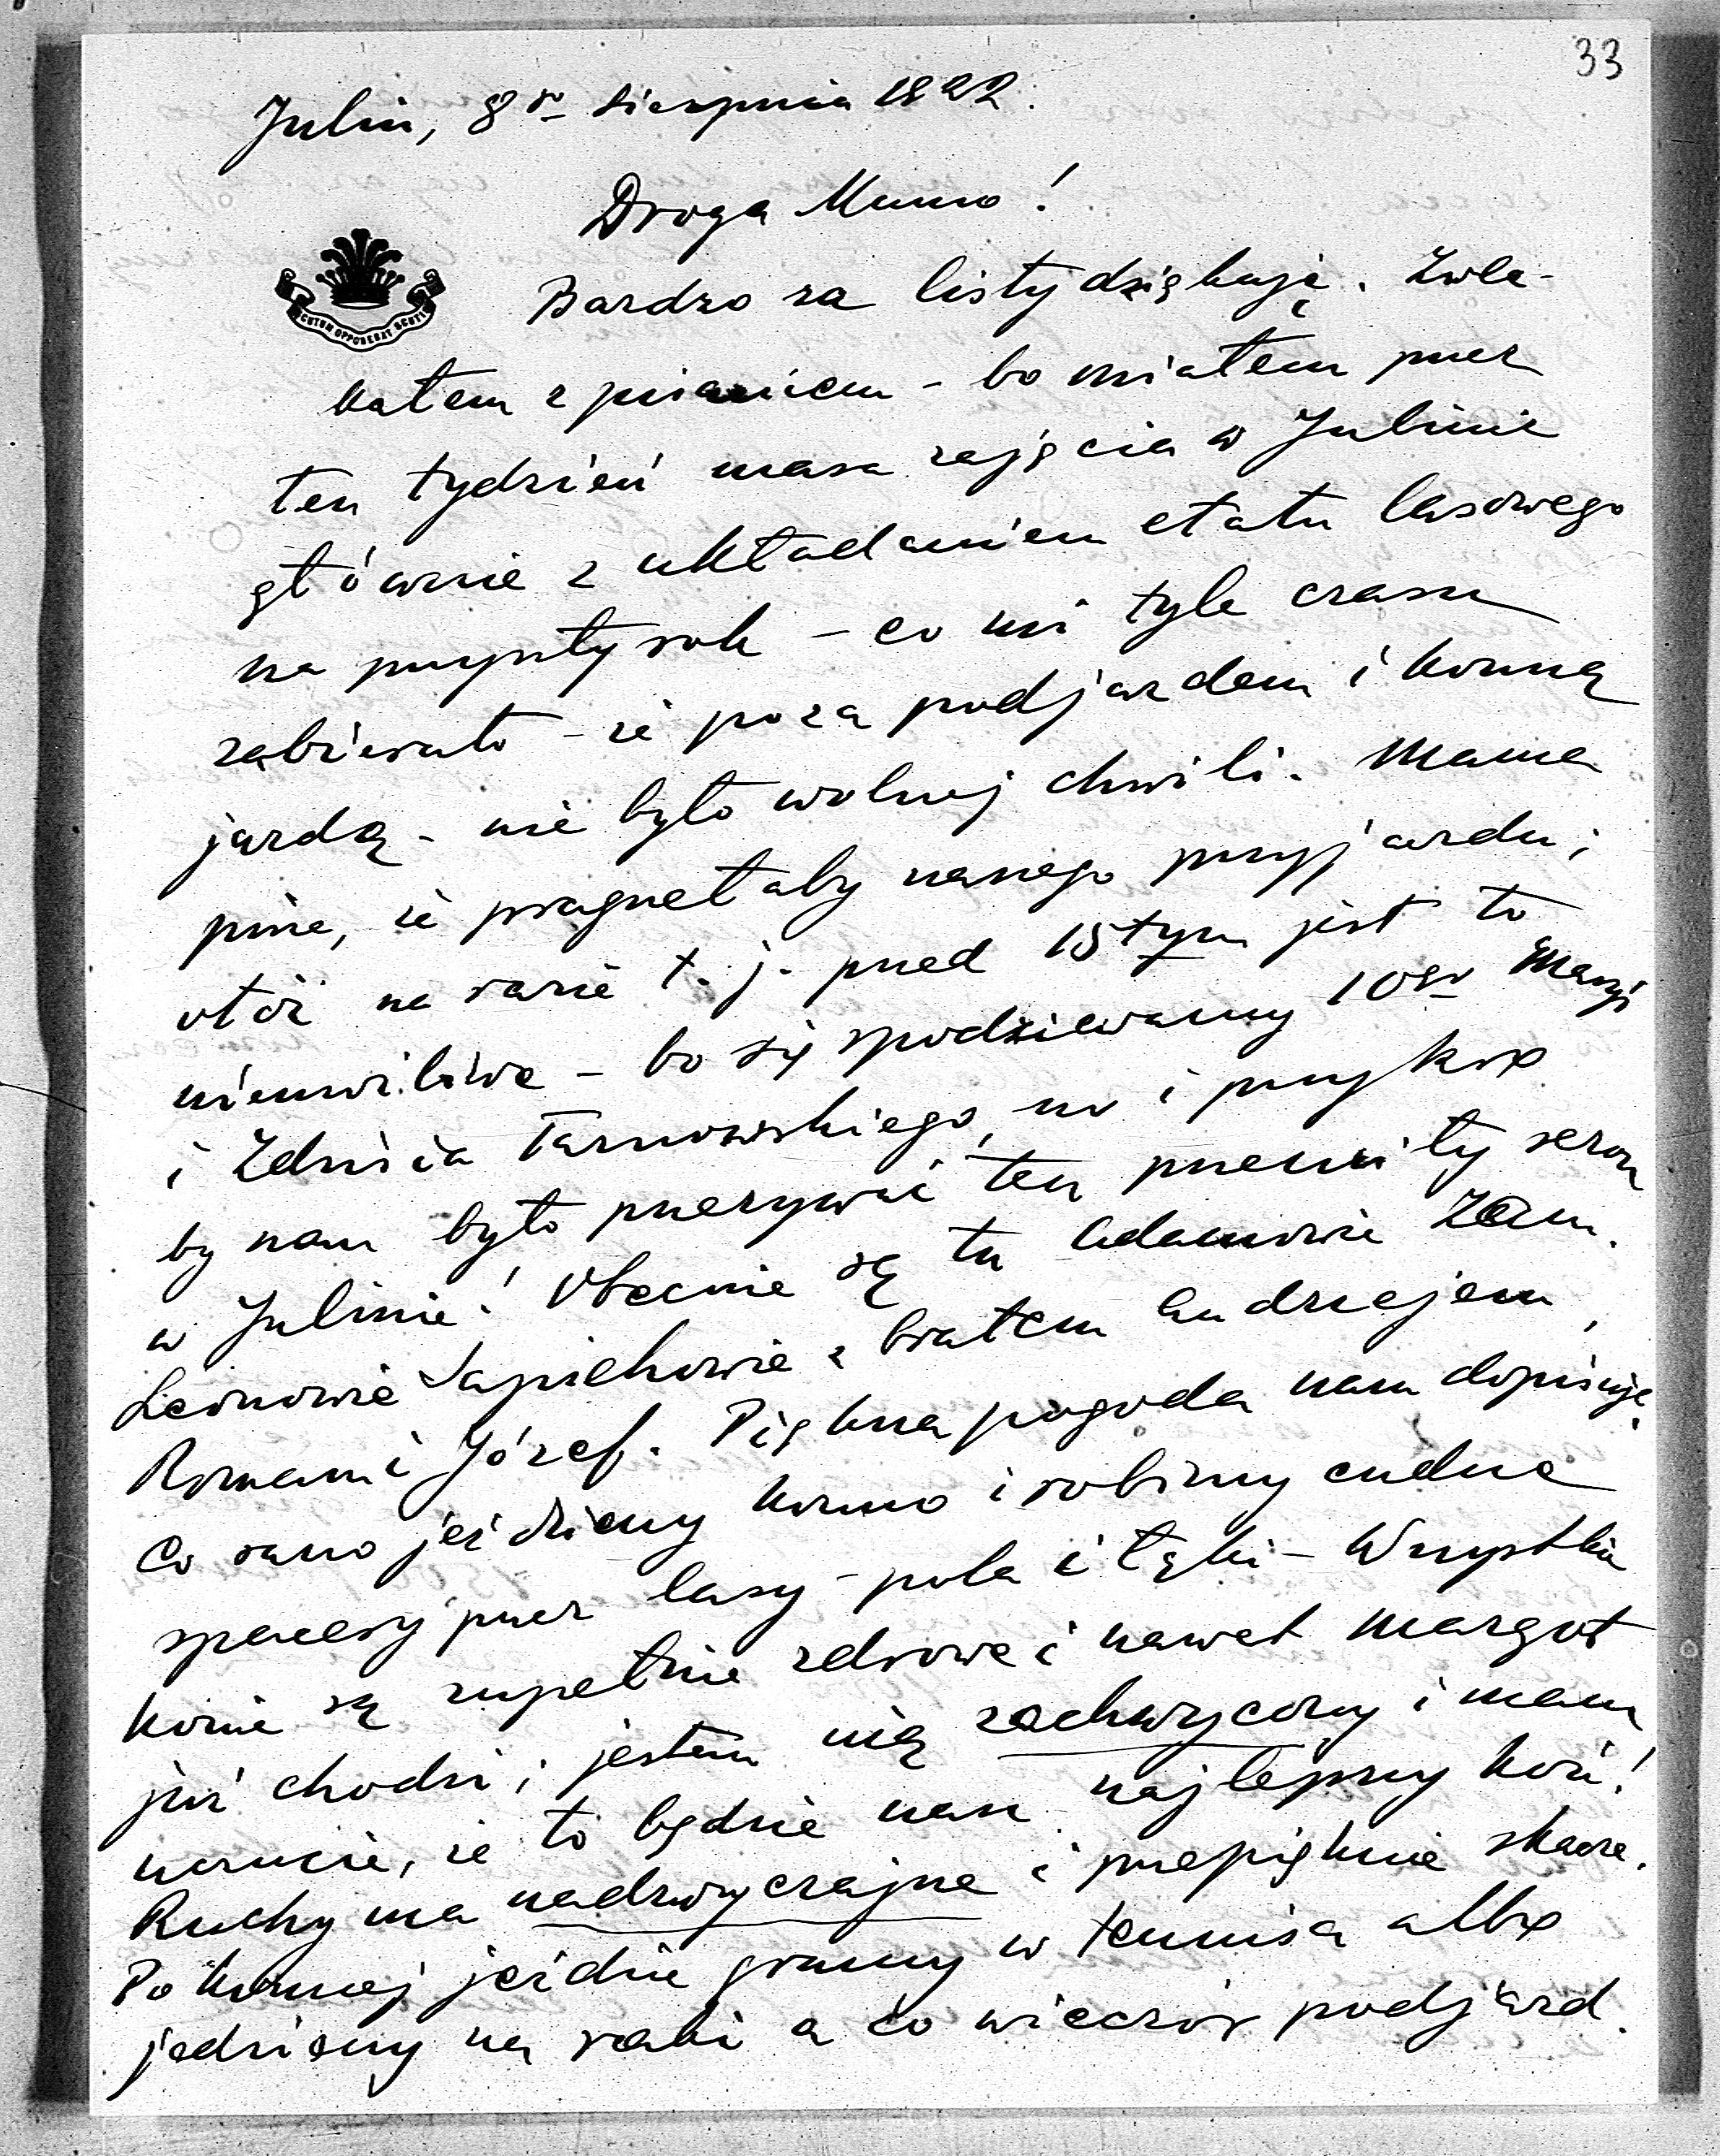 33
Julin, 8go sierpnia 1922.
Droga Mumo!
SCUTUM OPPONEBAT SCUTIS
Bardzo za listy dziękuję. Zwle-
kałem z pisaniem - bo miałem przez
ten tydzień masa zajęcia w Julinie
głównie z układaniem etatu lasowego
na przyszły rok - co mi tyle czasu
zabierało - że poza podjazdem i konną
jazdą - nie było wolnej chwili. Mama
pisze, że pragnęłaby naszego przyjazdu;
otóż na razie t. j. przed 15tym jest to
niemożliwe - bo się spodziewamy 10go Maryi
i Zdzisia Tarnowskiego, no i przykro
by nam było przerywać ten przemiły sezon
w Julinie! Obecnie są tu Adamowie Zam.
Leonowie Sapiehowie z bratem Andrzejem,
Roman i Józef. Piękna pogoda nam dopisuje.
Co rano jeździmy konno i robimy cudne
spacery przez lasy - pola i łąki - Wszystkie
konie są zupełnie zdrowe i nawet Margot
już chodzi; jestem nią zachwycony i mam
uczucie, że to będzie nasz najlepszy koń!
Ruchy ma nadzwyczajne i przepięknie skacze.
Po konnej jeździe gramy w tennisa albo
jedziemy na raki a co wieczór podjazd.